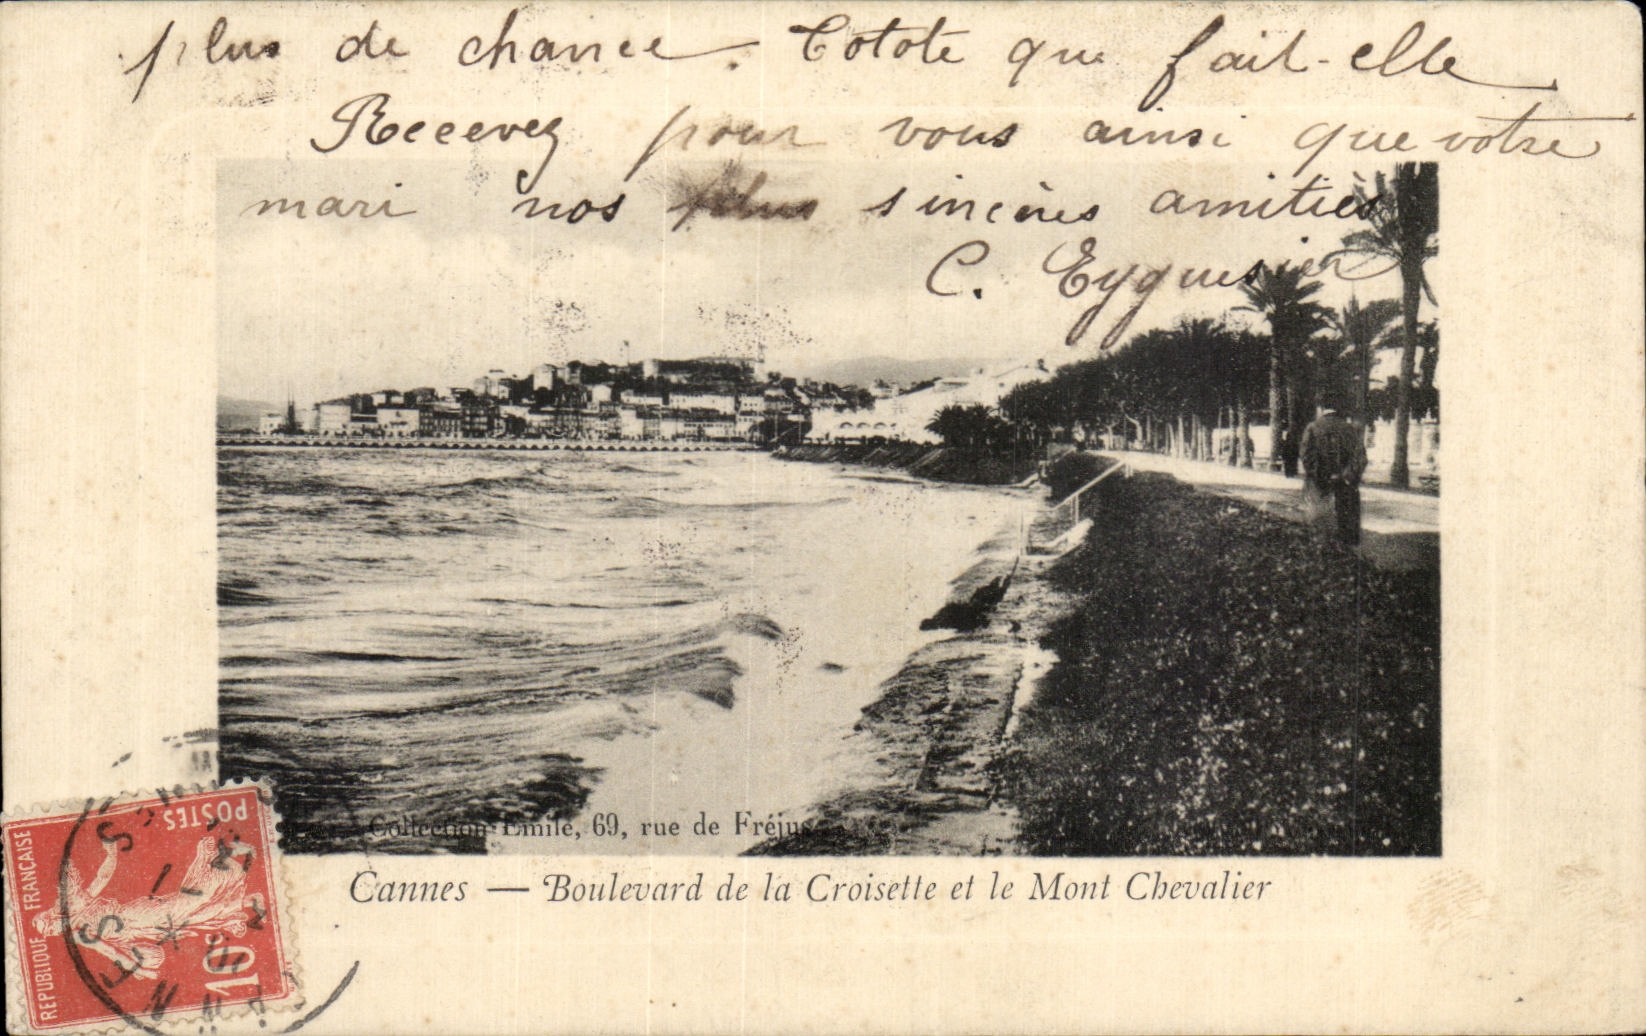 plus de chance. Totote que fait-elle
Recevez pour vous ainsi que votre
mari nos plus sincères amitiés
C. Eyguesier
Collection Emile, 69, rue de Fréjus
Cannes — Boulevard de la Croisette et le Mont Chevalier
POSTES
REPUBLIQUE FRANÇAISE
10c